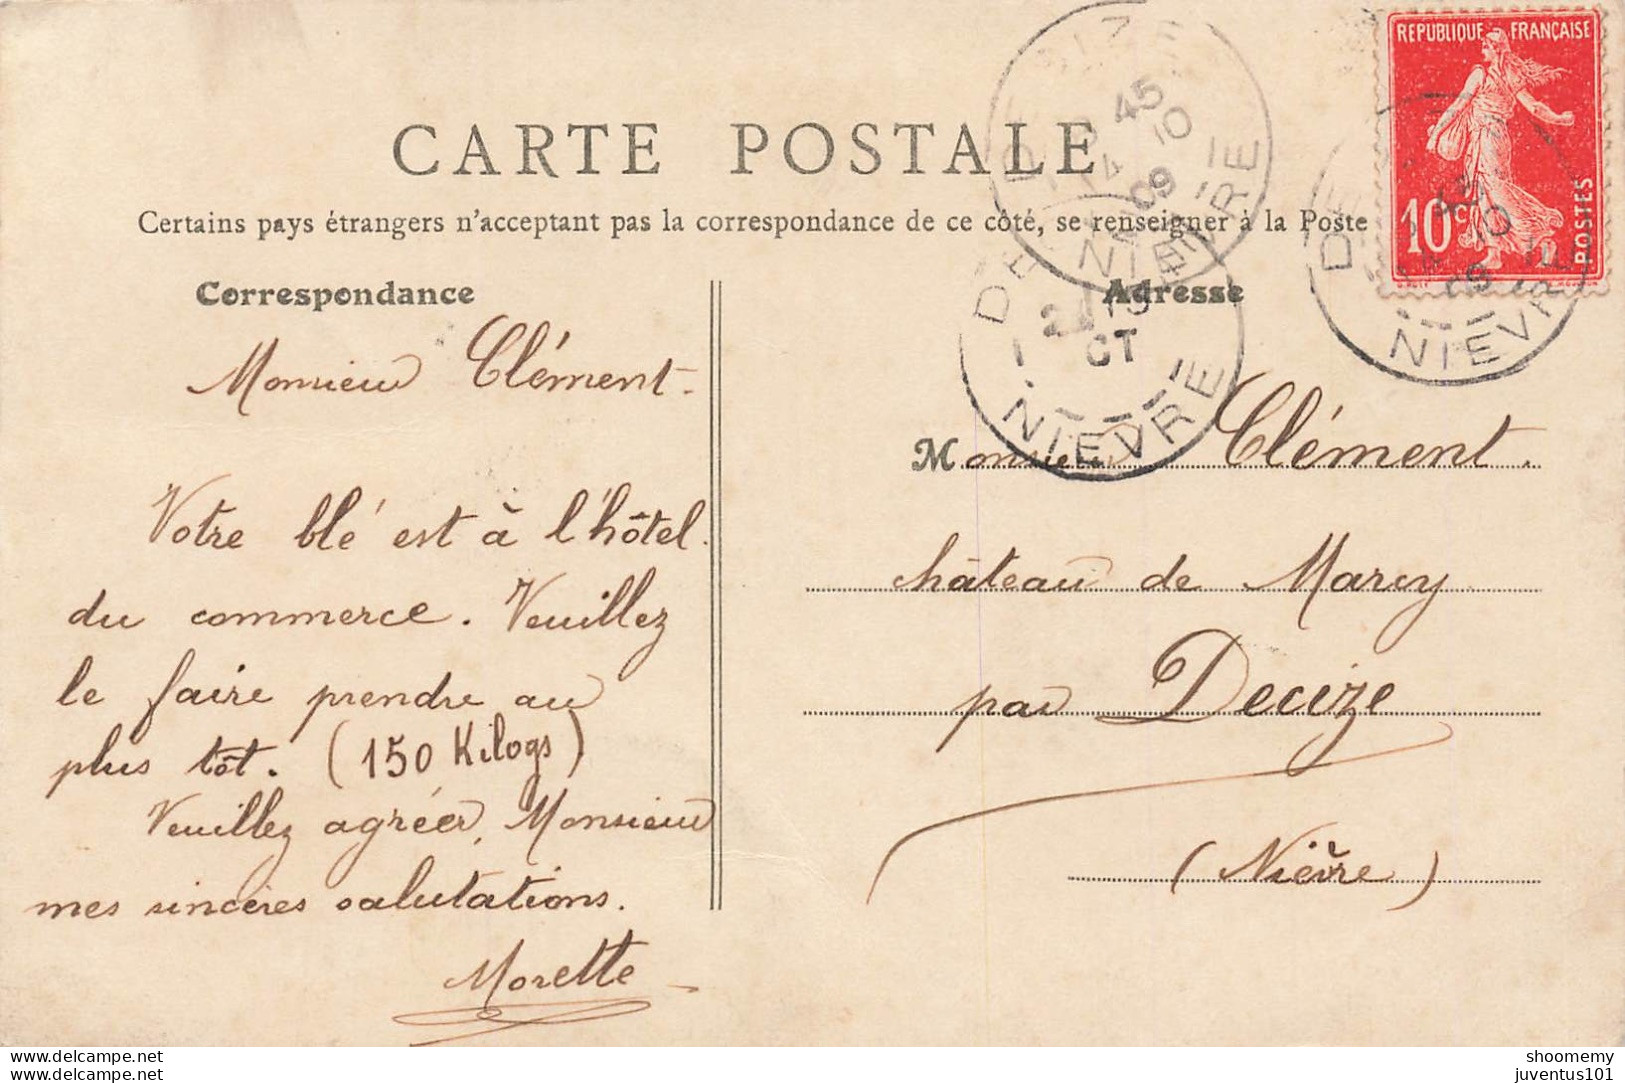 CARTE POSTALE
Certains pays étrangers n'acceptant pas la correspondance de ce côté, se renseigner à la Poste
REPUBLIQUE FRANÇAISE
10c
POSTES
DECIZE
45
14 10
09
NIEVRE
NIEVRE
CT
NIEVRE
Correspondance
Monsieur Clément.
Votre blé est à l'hôtel
du commerce. Veuillez
le faire prendre au
plus tôt. (150 Kilogs)
Veuillez agréer, Monsieur
mes sincères salutations.
Morette
Adresse
Monsieur Clément.
château de Marcy
par Decize
(Nièvre)
www.delcampe.net
www.delcampe.net
shoomemy
juventus101